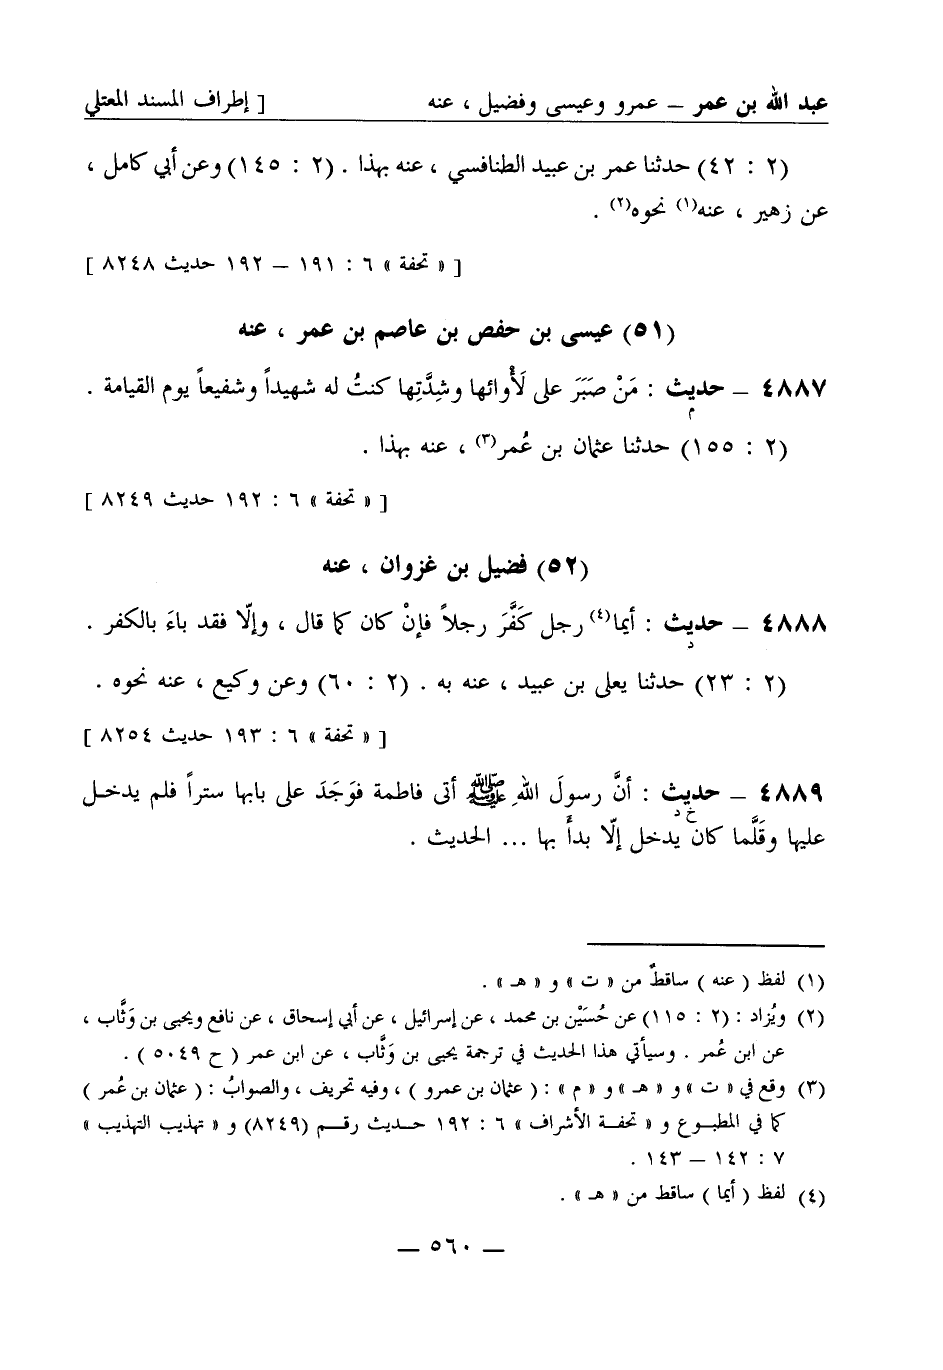 عبد الله بن عمر – عمرو وعيسى وفضيل ، عنه [ إطراف المسند المعتلي
(٢ : ٤٢) حدثنا عمر بن عبيد الطنافسي ، عنه بهذا . (٢ : ١٤٥) وعن أبي كامل ،
عن زهير ، عنه(١) نحوه(٢) .
[ « تحفة » ٦ : ١٩١ – ١٩٢ حديث ٨٢٤٨ ]
(٥١) عيسى بن حفص بن عاصم بن عمر ، عنه
٤٨٨٧ – حديث : مَنْ صَبَرَ على لَأْوائها وشِدَّتِها كنتُ له شهيداً وشفيعاً يوم القيامة .
م
(٢ : ١٥٥) حدثنا عثمان بن عُمر(٣) ، عنه بهذا .
[ « تحفة » ٦ : ١٩٢ حديث ٨٢٤٩ ]
(٥٢) فضيل بن غزوان ، عنه
٤٨٨٨ – حديث : أيما(٤) رجل كَفَّرَ رجلاً فإنْ كان كما قال ، وإلّا فقد باءَ بالكفر .
د
(٢ : ٢٣) حدثنا يعلى بن عبيد ، عنه به . (٢ : ٦٠) وعن وكيع ، عنه نحوه .
[ « تحفة » ٦ : ١٩٣ حديث ٨٢٥٤ ]
٤٨٨٩ – حديث : أنَّ رسولَ اللهِ ﷺ أتى فاطمة فوَجَدَ على بابها ستراً فلم يدخل
خ د
عليها وقَلَّما كان يدخل إلّا بدأَ بها ... الحديث .
(١) لفظ ( عنه ) ساقطٌ من « ت » و « هـ » .
(٢) ويُزاد : (٢ : ١١٥) عن حُسَيْن بن محمد ، عن إسرائيل ، عن أبي إسحاق ، عن نافع ويحيى بن وَثَّاب ،
عن ابن عُمر . وسيأتي هذا الحديث في ترجمة يحيى بن وَثَّاب ، عن ابن عمر ( ح ٥٠٤٩ ) .
(٣) وقع في « ت » و « هـ » و « م » : ( عثمان بن عمرو ) ، وفيه تحريف ، والصوابُ : ( عثمان بن عُمر )
كما في المطبوع و « تحفة الأشراف » ٦ : ١٩٢ حديث رقم (٨٢٤٩) و « تهذيب التهذيب »
٧ : ١٤٢ – ١٤٣ .
(٤) لفظ ( أيما ) ساقط من « هـ » .
– ٥٦٠ –